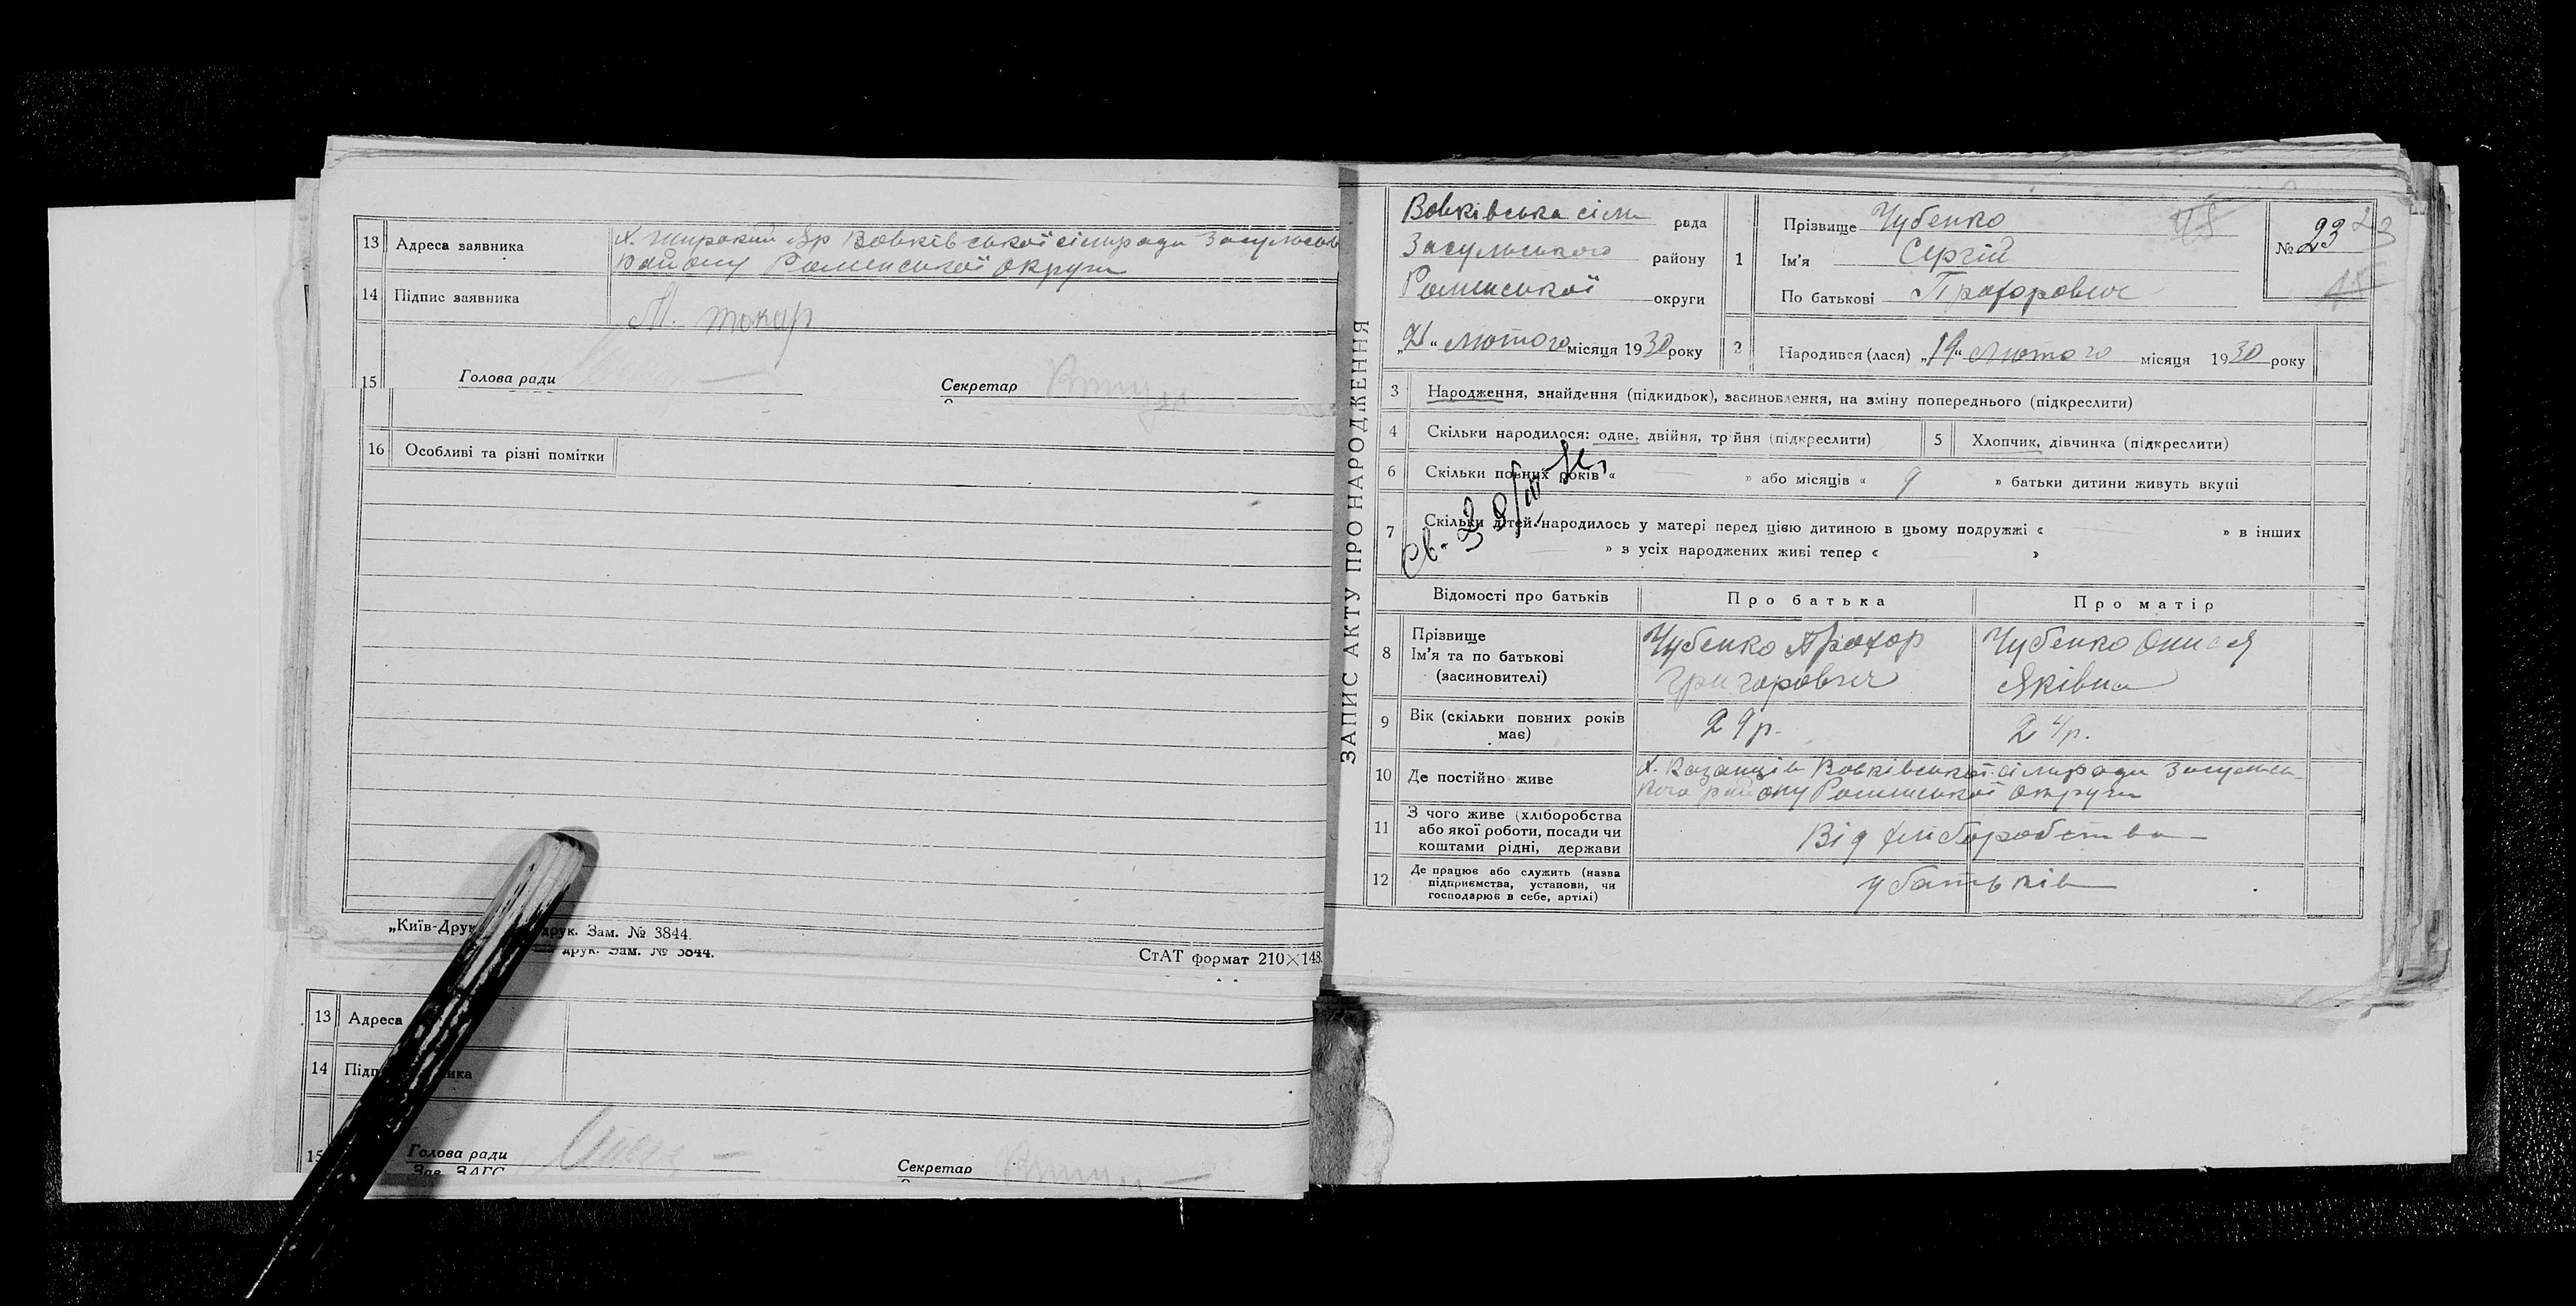 13 Адреса заявника х. Широкий Яр Вовківської сільради Засульськ
району Роменської округи
14 Підпис заявника М. Токар
15 Голова ради Секретар
16 Особливі та різні помітки
„Київ-Друк друк. Зам. № 3844.
друк. Зам. № 3844.
СтАТ формат 210×148.
13 Адреса
14 Підп ника
15 Голова ради Секретар
Зав. ЗАГС
ЗАПИС АКТУ ПРО НАРОДЖЕННЯ
Вовківська сіль рада
Засульського району
Роменської округи
„21“ лютого місяця 1930 року
1 Прізвище Чубенко
Ім'я Сергій
По батькові Прохорович
№ 23 23
2 Народився (лася) „19“ Лютого місяця 1930 року
3 Народження, знайдення (підкидьок), засиновлення, на зміну попереднього (підкреслити)
4 Скільки народилося: одне, двійня, трійня (підкреслити) 5 Хлопчик, дівчинка (підкреслити)
6 Скільки повних років « — » або місяців « 9 » батьки дитини живуть вкупі
7 Скільки дітей народилось у матері перед цією дитиною в цьому подружжі « — » в інших
— » з усіх народжених живі тепер « — »
Відомості про батьків Про батька Про матір
8 Прізвище
Ім'я та по батькові
(засиновителі)
Чубенко Прохор
Григорович
Чубенко Онися
Яківна
9 Вік (скільки повних років
має)
29 р. 24 р.
10 Де постійно живе х. Козанців Вовківської сільради Засульсь
кого району Роменської округи
11 З чого живе (хліборобства
або якої роботи, посади чи
коштами рідні, держави
Від хліборобства
12 Де працює або служить (назва
підприємства, установи, чи
господарює в себе, артілі)
у батьків